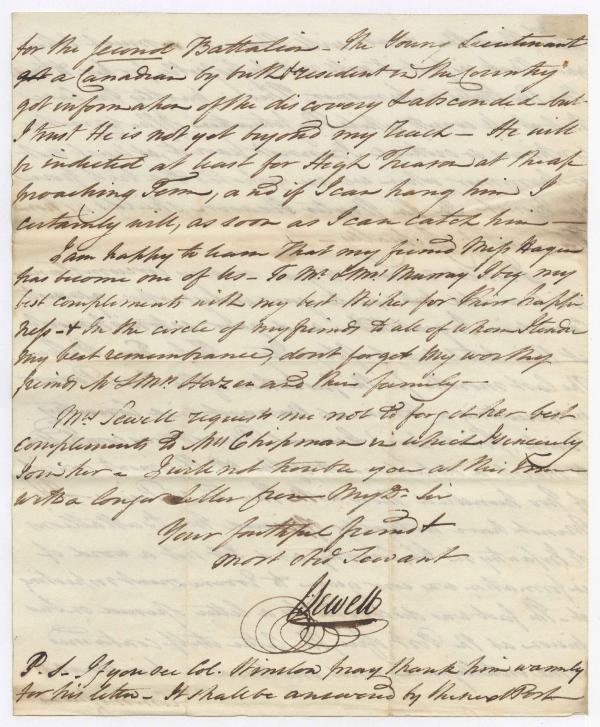 for the second Battalion – The Young Lieutenant
a Canadian by birth & resident in the Country
got information of the discovery & absconded – but
I trust He is not yet beyond my reach – He will
be indicted at least for High Treason at the ap
proaching Term, and if I can hang him I
certainly will, as soon as I can catch him –
I am happy to learn that my friend Miss Hazen
has become one of Us – To Mr. & Mrs. Murray I beg my
best compliments with my best Wishes for their happi
ness – & In the circle of my friends to all of whom I tender
my best remembrance, dont forget my worthy
friends Mr & Mrs. Hazen and their family –
Mrs Sewell requests me not to forget her best
compliments to Mrs Chipman in which I sincerely
Join her – I will not trouble you at this Time
with a longer letter from My Dr. Sir
Your faithful friend &
most obd Servant
J Sewell
P. S. – If you see Col. Winslow pray thank him warmly
for his letter – It shall be answered by the next Post